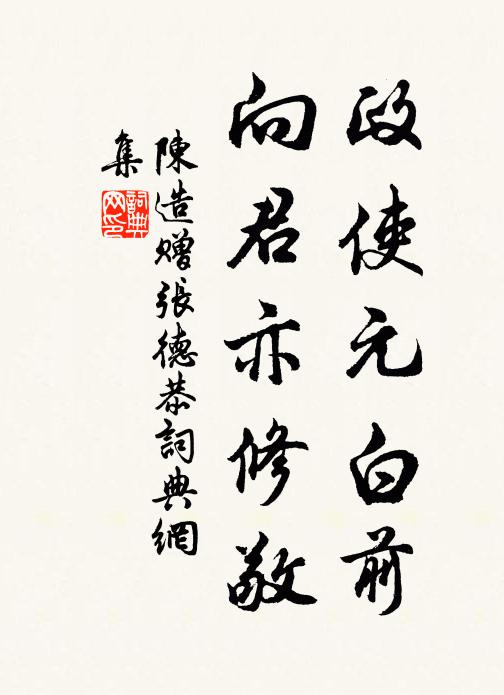 政使元白前
向君亦修敬
陳造贈張德恭詞典網
集
詞典網印